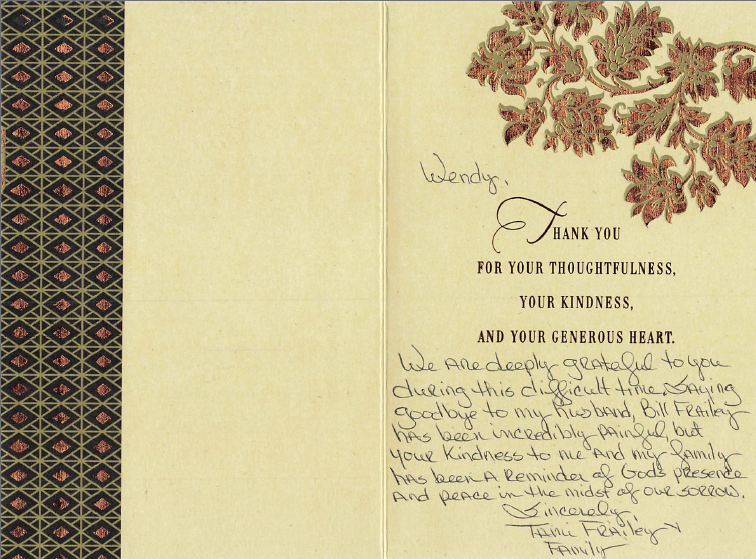 Wendy,
THANK YOU
FOR YOUR THOUGHTFULNESS,
YOUR KINDNESS,
AND YOUR GENEROUS HEART.
We are deeply grateful to you
during this difficult time. Saying
goodbye to my husband, Bill Frailey
has been incredibly painful, but
your kindness to me and my family
has been a reminder of God's presence
and peace in the midst of our sorrow.
Sincerely,
Tami Frailey &
Family